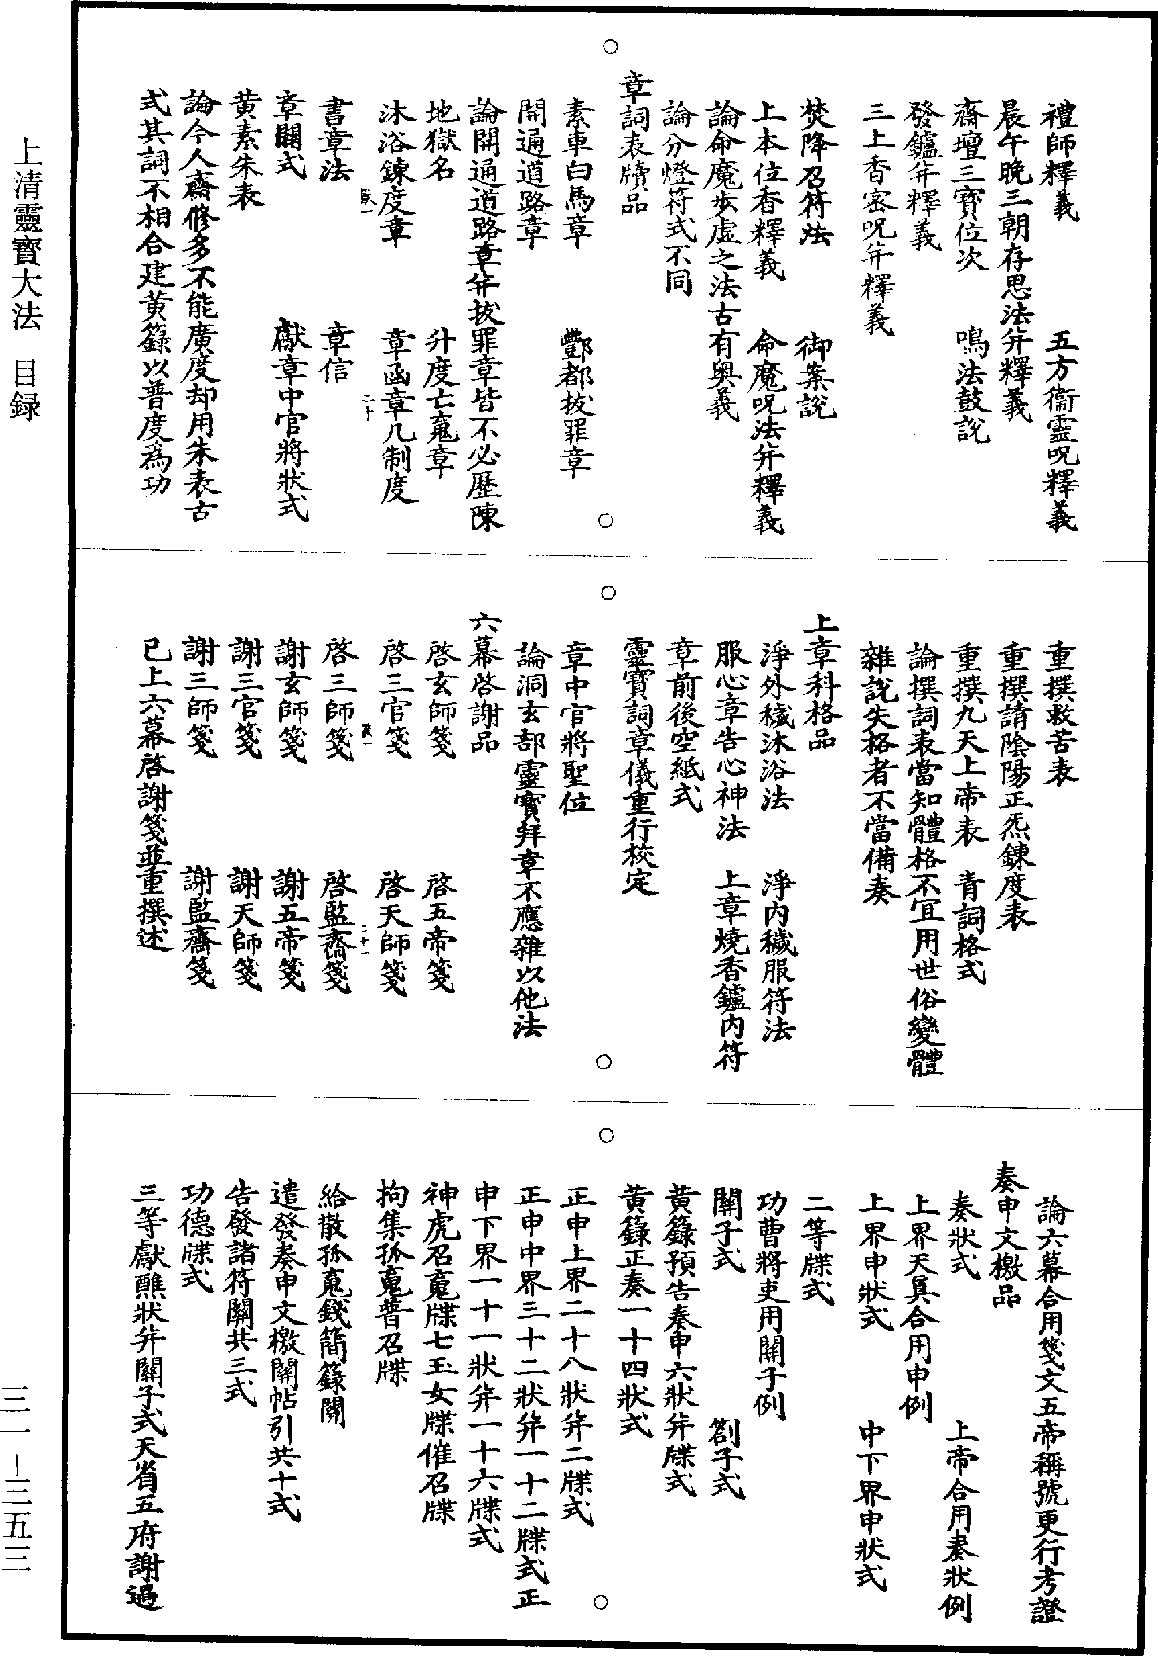 禮師釋義　五方衞靈呪釋義
晨午晚三朝存思法并釋義
齋壇三寶位次　鳴法鼓說
發鑪并釋義
三上香密呪并釋義
焚降召符法　御案說
上本位香釋義　命魔呪法并釋義
論命魔步虛之法古有奧義
論分燈符式不同
章詞表牘品
素車白馬章　酆都拔罪章
開通道路章
論開通道路章并拔罪章皆不必歷陳
地獄名　升度亡䰟章
沐浴鍊度章　章函章几制度
書章法　章信
章關式　獻章中官將狀式
黄素朱表
論今人齋修多不能廣度却用朱表古
式其詞不相合建黄籙以普度爲功
重撰救苦表
重撰請陰陽正炁鍊度表
重撰九天上帝表　青詞格式
論撰詞表當知體格不宜用世俗變體
雜說失格者不當備奏
上章科格品
淨外穢沐浴法　淨内穢服符法
服心章告心神法　上章燒香鑪内符
章前後空紙式
靈寶詞章儀重行校定
章中官將聖位
論洞玄部靈寶拜章不應雜以他法
六幕啓謝品
啓玄師箋　啓五帝箋
啓三官箋　啓天師箋
啓三師箋　啓監齋箋
謝玄師箋　謝五帝箋
謝三官箋　謝天師箋
謝三師箋　謝監齋箋
已上六幕啓謝箋並重撰述
論六幕合用箋文五帝稱號更行考證
奏申文檄品
奏狀式　上帝合用奏狀例
上界天具合用申例
上界申狀式　中下界申狀式
二等牒式
功曹將吏用關子例
關子式　劄子式
黄籙預告奏申六狀并牒式
黄籙正奏一十四狀式
正申上界二十八狀并二牒式
正申中界三十二狀并一十二牒式正
申下界一十一狀并一十六牒式
神虎召䰟牒七玉女牒催召牒
拘集孤䰟普召牒
給散孤䰟錢簡籙關
遣發奏申文檄關帖引共十式
告發諸符關共三式
功德牒式
三等獻醮狀并關子式天省五府謝過
上清靈寶大法　目録
三一－三五三